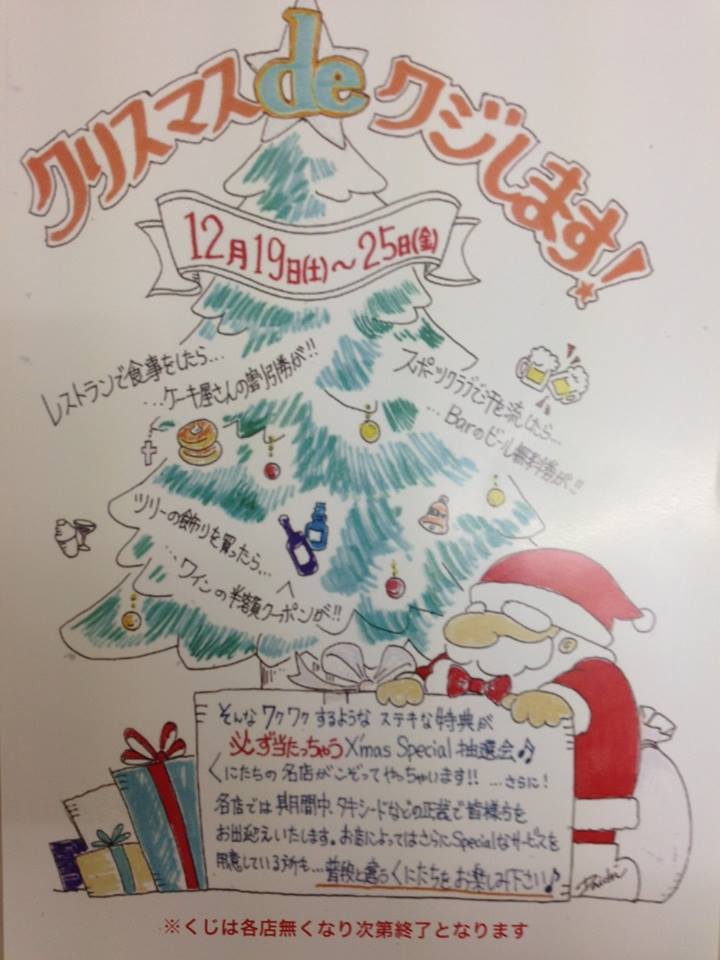 クリスマス de クジします!
12月19日(土)～25日(金)
レストランで食事をしたら…
…ケーキ屋さんの割引券が!!
スポーツクラブで汗を流したら…
…Barのビール無料券が!!
ツリーの飾りを買ったら…
…ワインの半額クーポンが!!
そんなワクワクするようなステキな特典が
必ず当たっちゃう X'mas Special 抽選会♪
くにたちの名店がこぞってやっちゃいます!! …さらに!
名店では期間中、タキシードなどの正装で皆様方を
お出迎えいたします。お店によってはさらにSpecialなサービスを
用意している所も…普段と違うくにたちをお楽しみ下さい♪
※くじは各店無くなり次第終了となります